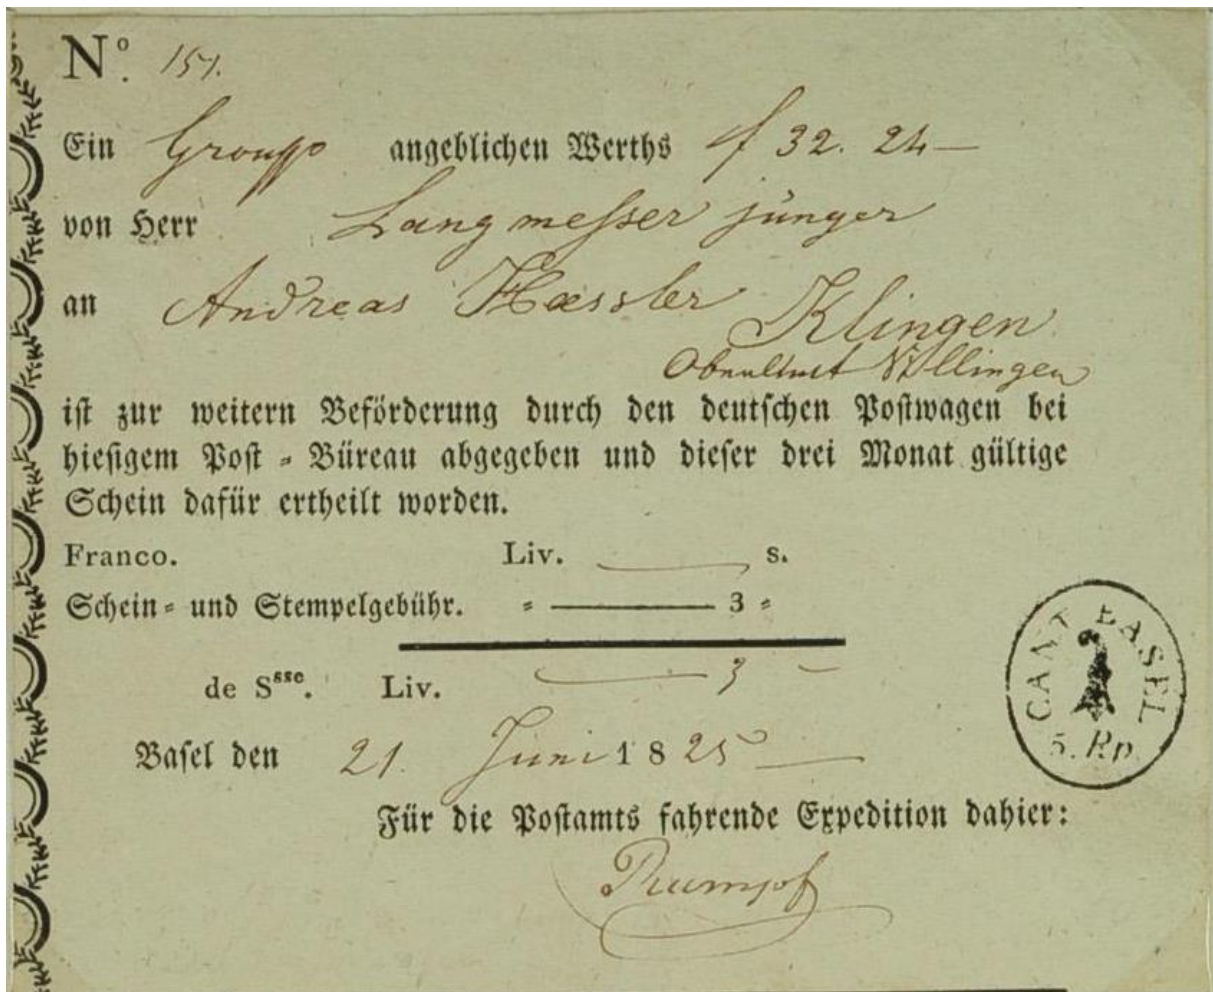 Nº. 151.
Ein Group angeblichen Werths f 32. 24 —
von Herr Langmesser jünger
an Andreas Haessler Klingen
Villingen
ist zur weitern Beförderung durch den deutschen Postwagen bei
hiesigem Post - Büreau abgegeben und dieser drei Monat gültige
Schein dafür ertheilt worden.
Franco. Liv. — s.
Schein- und Stempelgebühr. " — 3 "
de Ssse. Liv. — 3 —
Basel den 21. Juni 1825 —
Für die Postamts fahrende Expedition dahier:
Rumpf
CANT BASEL
5. Rp.